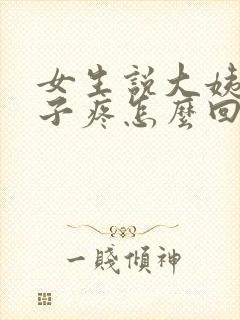 女生說大姨
子疼怎麼回
一賤傾神